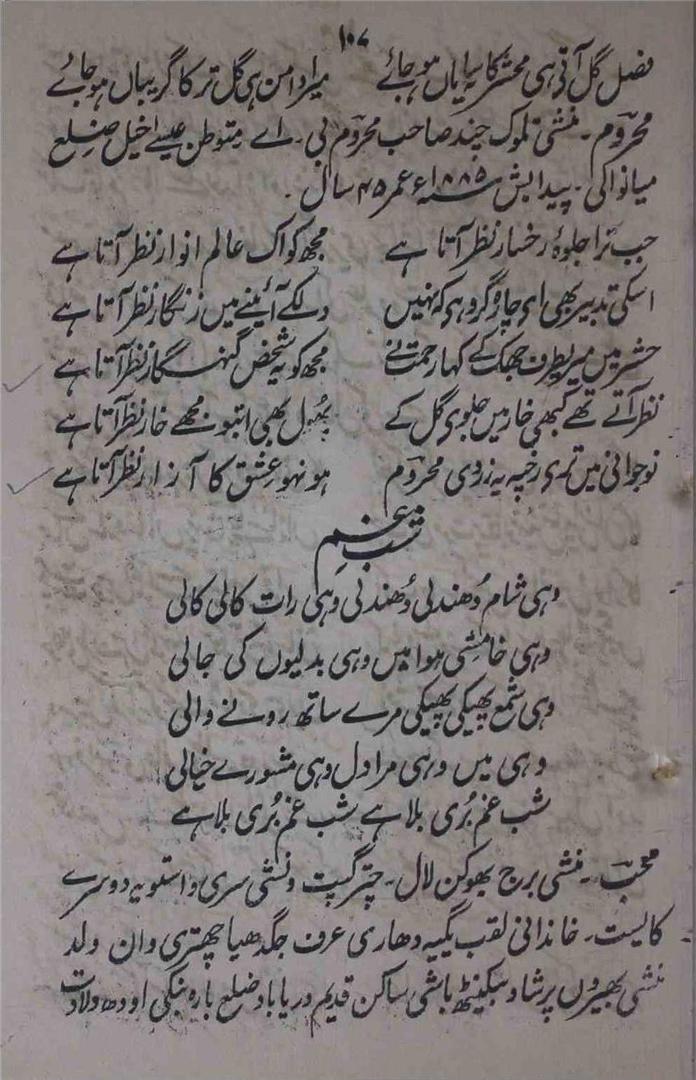 ۱۰۷
فصل گل آتی ہی محشر کا سا یاں ہو جائے میرا دامن ہی گل تر کا گریباں ہو جائے
محروم ۔ منشی تلوک چند صاحب محروم بی ۔ اے متوطن عیسے اخیل ضلع
میانوالی ۔ پیدایش سنہ ۱۸۸۵ء عمر ۴۵ سال ۔
جب ترا جلوۂ رخسار نظر آتا ہے مجھ کو اک عالم انوار نظر آتا ہے
اسکی تدبیر بھی ای چارہ گرو ہی کہ نہیں دلکے آئینے میں زنگار نظر آتا ہے
حشر میں میریطرف جھک کے کہا رحمت نے مجھ کو یہ شخص گنہگار نظر آتا ہے
نظر آتے تھے کبھی خار میں جلوی گل کے پھول بھی ابتو مجھے خار نظر آتا ہے
نوجوانی میں تری رخپہ یہ زردی محروم ہو نہو عشق کا آزار نظر آتا ہے
شب غم
وہی شام دُھندلی دُھندلی وہی رات کالی کالی
وہی خامشی ہوا میں وہی بدلیوں کی جالی
وہی شمع پھیکی پھیکی مرے ساتھ رونے والی
وہی میں وہی مرا دل وہی مشورے خیالی
شب غم بُری بلا ہے شب غم بُری بلا ہے
محب ۔ منشی برج بھوکن لال ۔ چتر گپت ونشی سری واستویہ دوسرے
کایست ۔ خاندانی لقب یگیہ دھاری عرف جگدھیا چھتری وان ولد
منشی بھیروں پرشاد بیکنٹھ باشی ساکن قدیم دریاباد ضلع بارہ بنکی اودھ ولادت